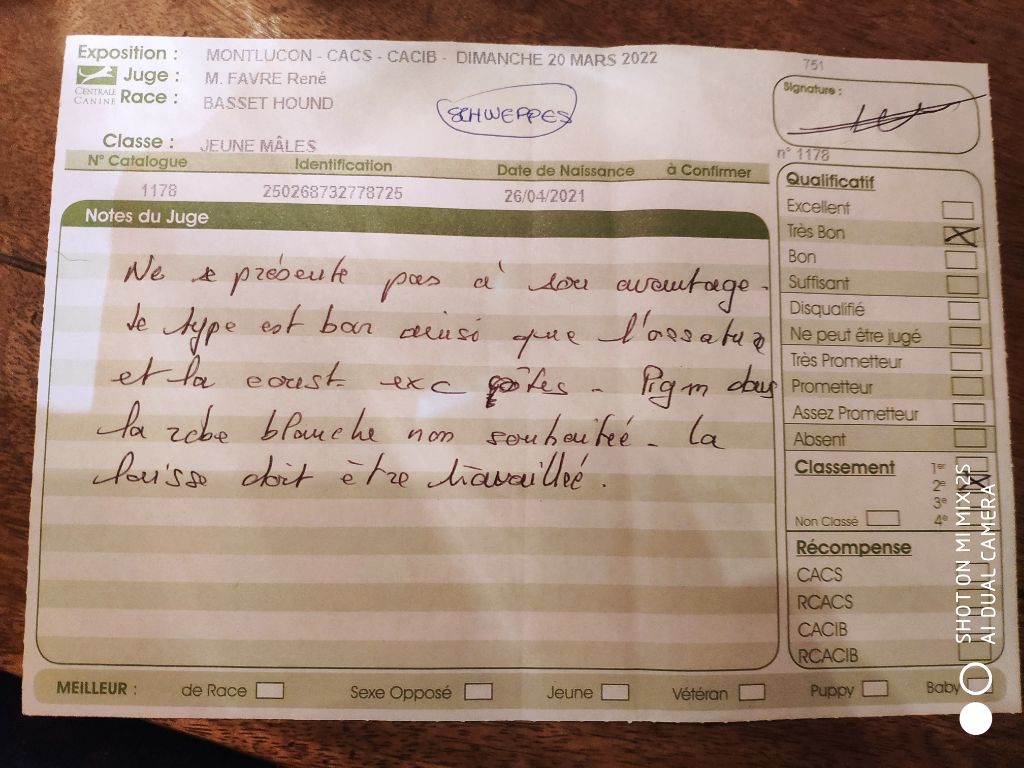 Exposition : MONTLUCON - CACS - CACIB - DIMANCHE 20 MARS 2022
751
CENTRALE CANINE
Juge : M. FAVRE René
Race : BASSET HOUND
SCHWEPPES
Signature :
Classe : JEUNE MÂLES
n° 1178
N° Catalogue Identification Date de Naissance à Confirmer
1178 250268732778725 26/04/2021
Notes du Juge
Ne se présente pas à son avantage.
Le type est bon ainsi que l'ossature
et la const. exc côtes - Pigm dans
la robe blanche non souhaitée - La
laisse doit être travaillée.
Qualificatif
Excellent
Très Bon
Bon
Suffisant
Disqualifié
Ne peut être jugé
Très Prometteur
Prometteur
Assez Prometteur
Absent
Classement 1er
2e
3e
Non Classé 4e
Récompense
CACS
RCACS
CACIB
RCACIB
MEILLEUR : de Race Sexe Opposé Jeune Vétéran Puppy Baby
SHOT ON MI MIX 2S
AI DUAL CAMERA